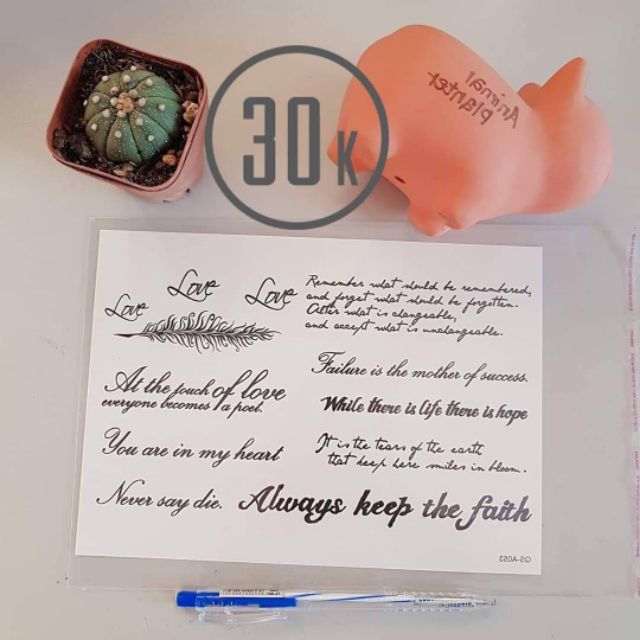 30K
Animal
planter
Love
Love
Love
At the touch of love
everyone becomes a poet.
You are in my heart
Never say die.
Remember what should be remembered,
and forget what should be forgotten.
Alter what is changeable,
and accept what is unchangeable.
Failure is the mother of success.
While there is life there is hope
It is the tears of the earth
that keep here smiles in bloom.
Always keep the faith
QS-A053